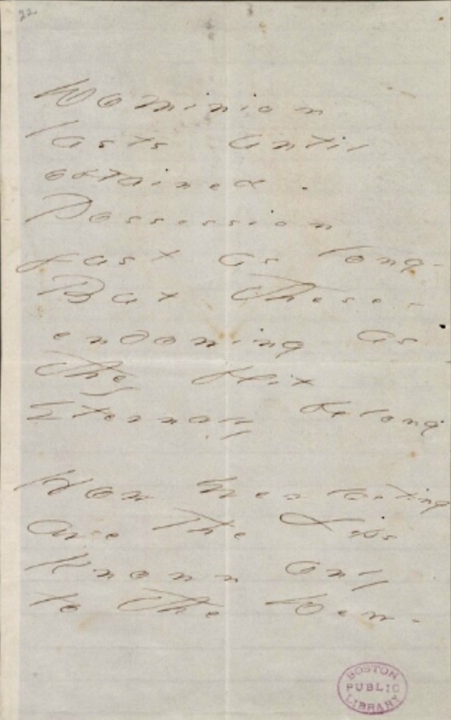 22
Dominion
lasts until
obtained.
Possession
just as long -
But these -
endowing as
they flit
Eternally belong
How Everlasting
are the Lips
Known only
to the Dew -
BOSTON
PUBLIC
LIBRARY